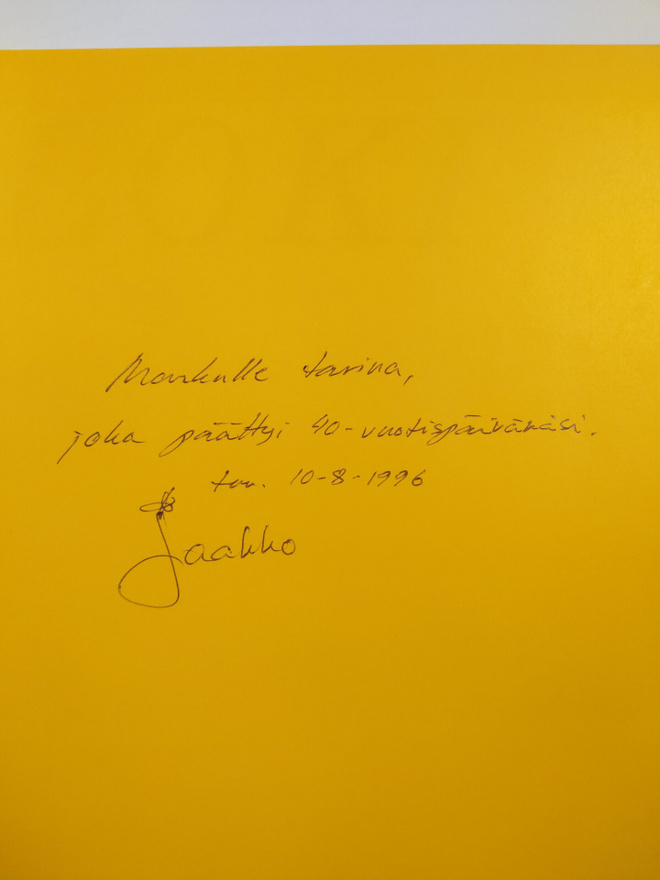 Markulle tarina,
joka päättyi 40-vuotispäivänäsi.
tuu. 10-8-1996
Jaakko